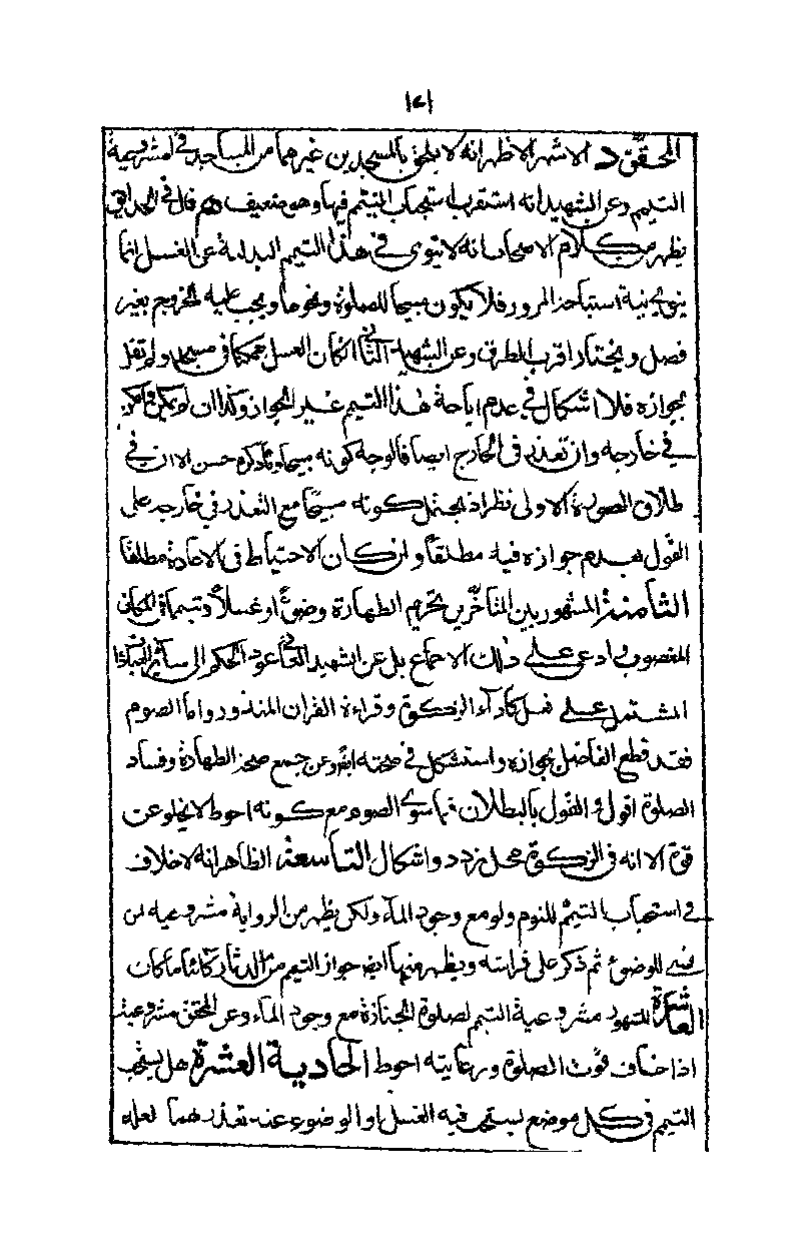 ١٤١
المحقق د الاشهر الاظهر انه لا يلحق بالمسجدين غيرهما من المساجد في مشروعية
التيمم وعن الشهيد انه استقرب استحباب التيمم فيها وهو ضعيف قال في الحدائق
يظهر من كلام الاصحاب انه لا ينوي في هذا التيمم البدلية عن الغسل انما
ينوي به نية استباحة المرور فلا يكون مبيحا للصلوة ونحوها ويجب عليه الخروج بغير
فصل ويختار اقرب الطرق وعن الشهيد الثاني ان كان الغسل ممكنا في مسجد ولم نقل
بجوازه فلا اشكال في عدم اباحة هذا التيمم غير الجواز وكذا ان لم يكن وامكن
في خارجه وان تعذر في الخارج ايضا فالوجه كونه مبيحا وما ذكره حسن الا ان في
طلاق الصورة الاولى نظر اذ يحتمل كونه مبيحا مع التعذر في خارجه على
القول بعدم جوازه فيه مطلقا وان كان الاحتياط في الاعادة مطلقا
الثامنة المشهور بين المتأخرين تحريم الطهارة وضوءً او غسلاً وتيمما في المكان
المغصوب وادعى على ذلك الاجماع بل عن الشهيد الثاني عود الحكم الى سائر العبادات
المشتمل على فعل كاداء الزكوة وقراءة القران المنذور واما الصوم
فقد قطع الفاضل بجوازه واستشكل في صحته ايضا وعن جمع صحة الطهارة وفساد
الصلوة اقول والقول بالبطلان فيما سوى الصوم مع كونه احوط لا يخلو عن
قوة الا انه في الزكوة محل تردد واشكال التاسعة الظاهر انه لا خلاف
في استحباب التيمم للنوم ولو مع وجود الماء ولكن يظهر من الرواية مشروعيه لمن
نسي للوضوء ثم ذكر على فراشه ويظهر منها ايضا جواز التيمم من الدثار كائنا ما كان
العاشرة المشهور مشروعية التيمم لصلوة الجنازة مع وجود الماء وعن المحقق مشروعيته
اذا خاف فوت الصلوة ورعايته احوط الحادية العشرة هل يستحب
التيمم في كل موضع يستحب فيه الغسل او الوضوء عند تعذرهما لعله